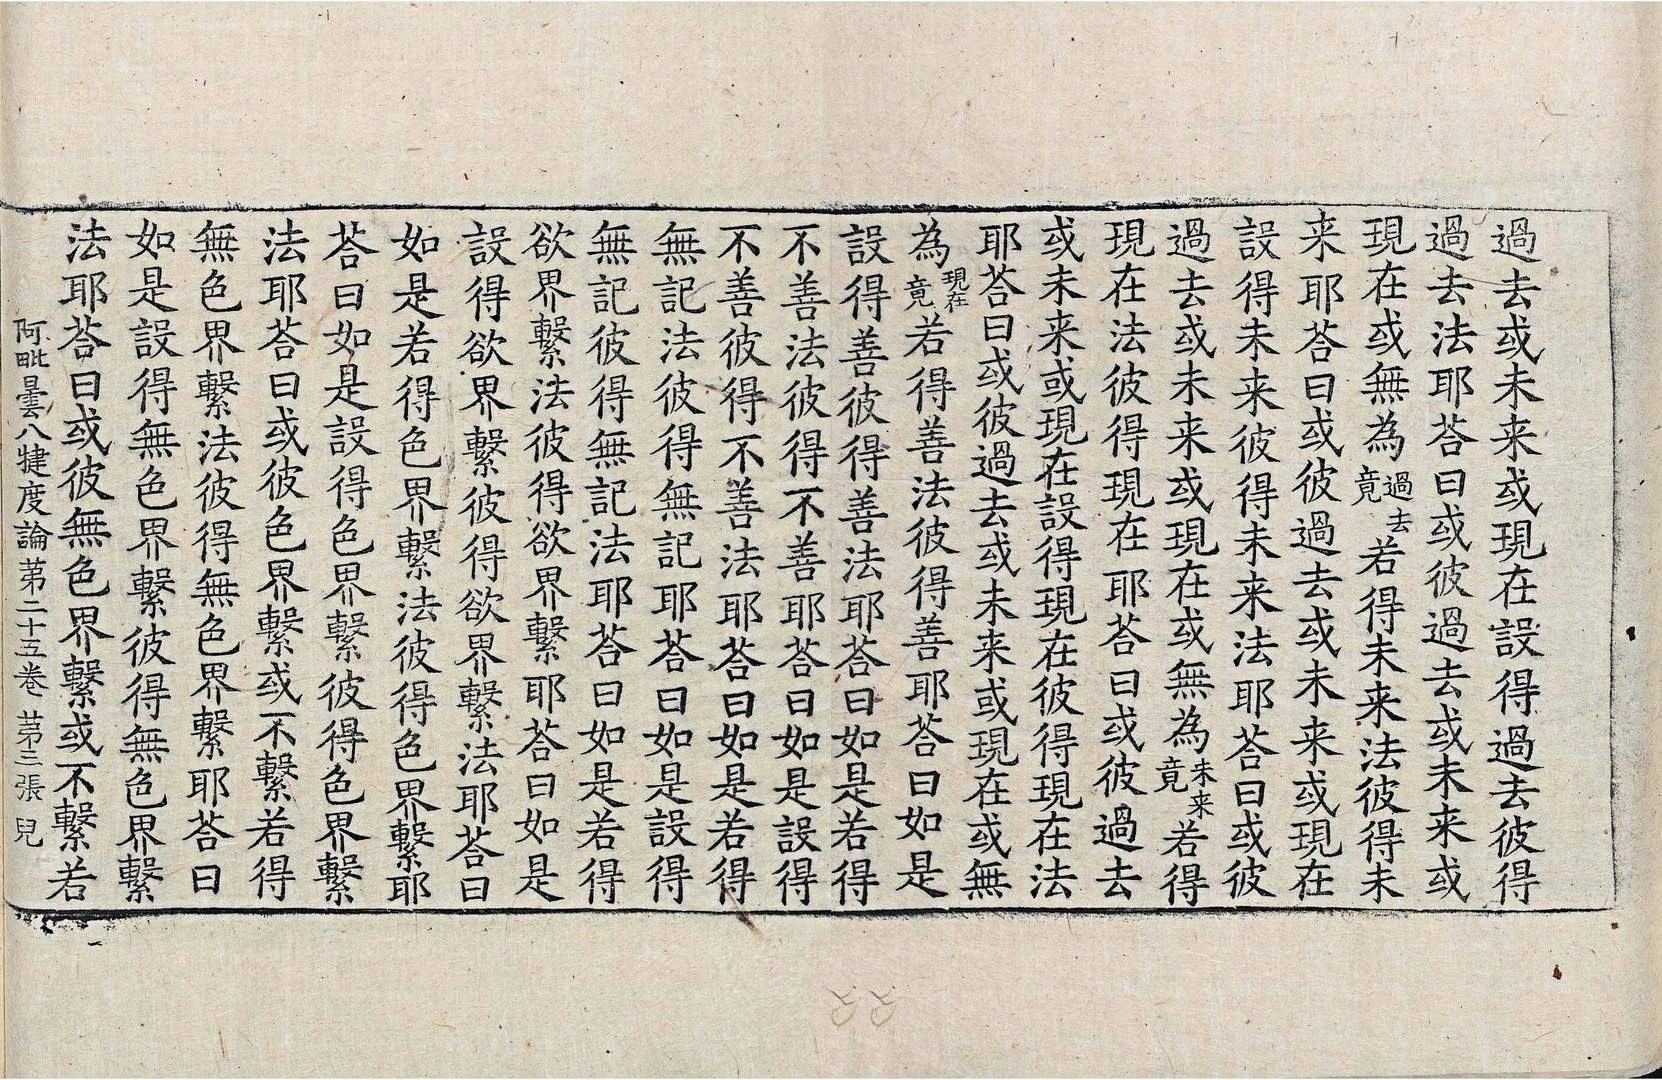 過去或未来或現在設得過去彼得
過去法耶荅曰或彼過去或未来或
現在或無為過去竟若得未来法彼得未
来耶荅曰或彼過去或未来或現在
設得未来彼得未来法耶荅曰或彼
過去或未来或現在或無為未来竟若得
現在法彼得現在耶荅曰或彼過去
或未来或現在設得現在彼得現在法
耶荅曰或彼過去或未来或現在或無
為現在竟若得善法彼得善耶荅曰如是
設得善彼得善法耶荅曰如是若得
不善法彼得不善耶荅曰如是設得
不善彼得不善法耶荅曰如是若得
無記法彼得無記耶荅曰如是設得
無記彼得無記法耶荅曰如是若得
欲界繫法彼得欲界繫耶荅曰如是
設得欲界繫彼得欲界繫法耶荅曰
如是若得色界繫法彼得色界繫耶
荅曰如是設得色界繫彼得色界繫
法耶荅曰或彼色界繫或不繫若得
無色界繫法彼得無色界繫耶荅曰
如是設得無色界繫彼得無色界繫
法耶荅曰或彼無色界繫或不繫若
阿毗曇八犍度論第二十五卷 第三張 兒